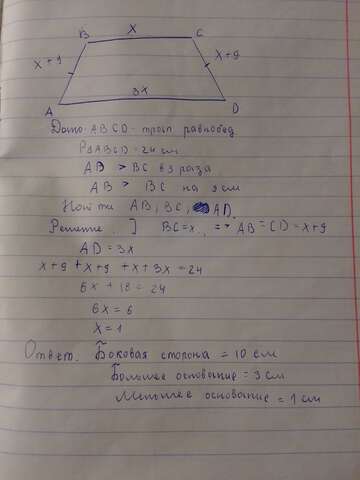 B x C
x+9 x+9
3x
A D
Дано: ABCD - трап равнобед
PABCD = 24 см
AB > BC в 3 раза
AB > BC на 9 см
Найти AB, BC, AD.
Решение. ] BC=x, => AB=CD=x+9
AD = 3x
x+9 + x+9 + x + 3x = 24
6x + 18 = 24
6x = 6
x = 1
Ответ. Боковая сторона = 10 см
Большее основание = 3 см
Меньшее основание = 1 см